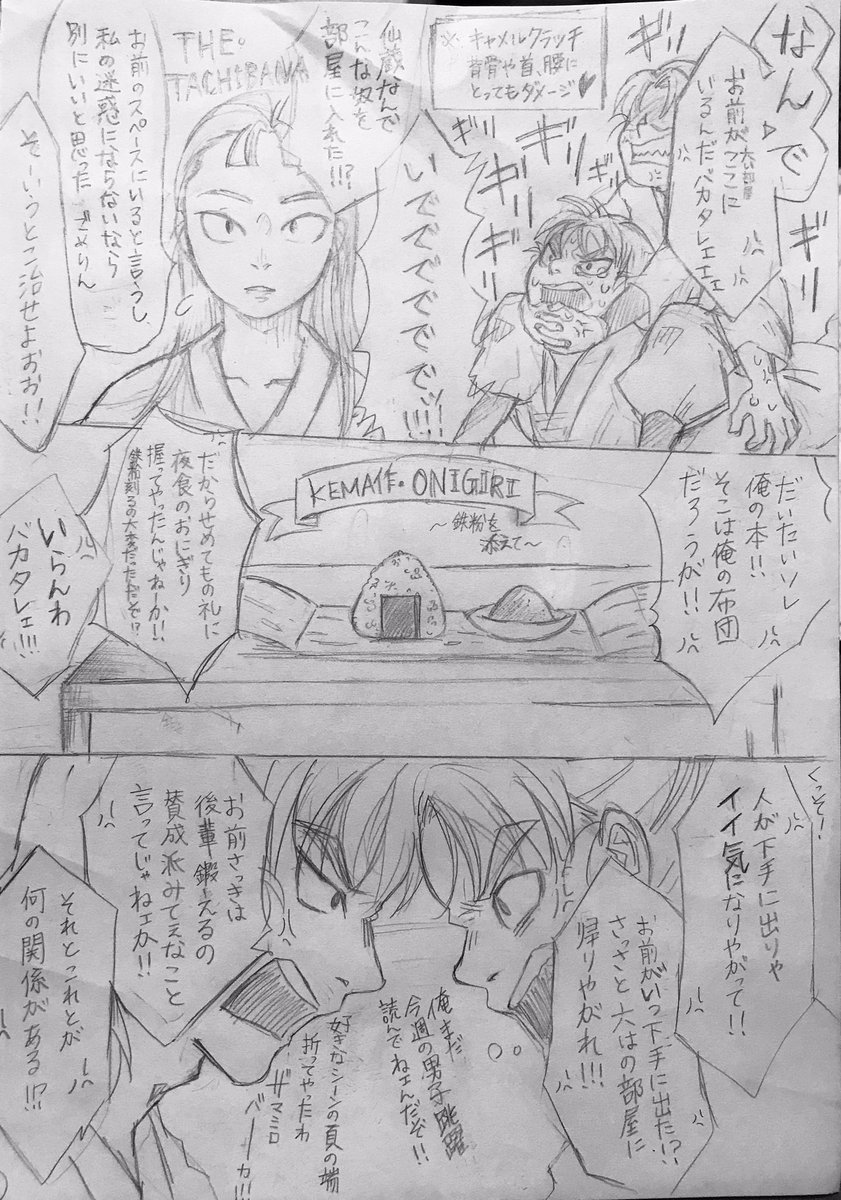 なんで
お前がここに
い組部屋
いるんだバカタレェェェ
ギリ
ギリ
ギリ
ギリ
ギリ
※キャメルクラッチ
背骨や首、腰に
とってもダメージ♥
いででででででッ!!!!
仙蔵なんで
こんな奴を
部屋に入れた!!?
THE・
TACHIBANA
お前のスペースにいると言うし、
私の迷惑にならないなら
別にいいと思った ごめりん
そーいうとこ治せよおお!!
だいたいソレ
俺の本!!
そこは俺の布団
だろうが!!
KEMA作・ONIGIRI
〜鉄粉を
添えて〜
だからせめてもの礼に
夜食のおにぎり
握ってやったんじゃねーか!!
鉄粉刻るの大変だったんだぞ!?
いらんわ
バカタレェ!!!
くっそ!
人が下手に出りゃ
イイ気になりやがって!!
お前がいつ下手に出た!?
さっさと六はの部屋に
帰りやがれ!!!
俺まだ
今週の男子跳躍
読んでねェんだぞ!!
好きなシーンの頁の端
折ってやったわ
ザマミロ
バーカ!!!
お前さっきは
後輩鍛えるの
賛成派みてぇなこと
言ってじゃねェか!!
それとこれとが
何の関係がある!!?